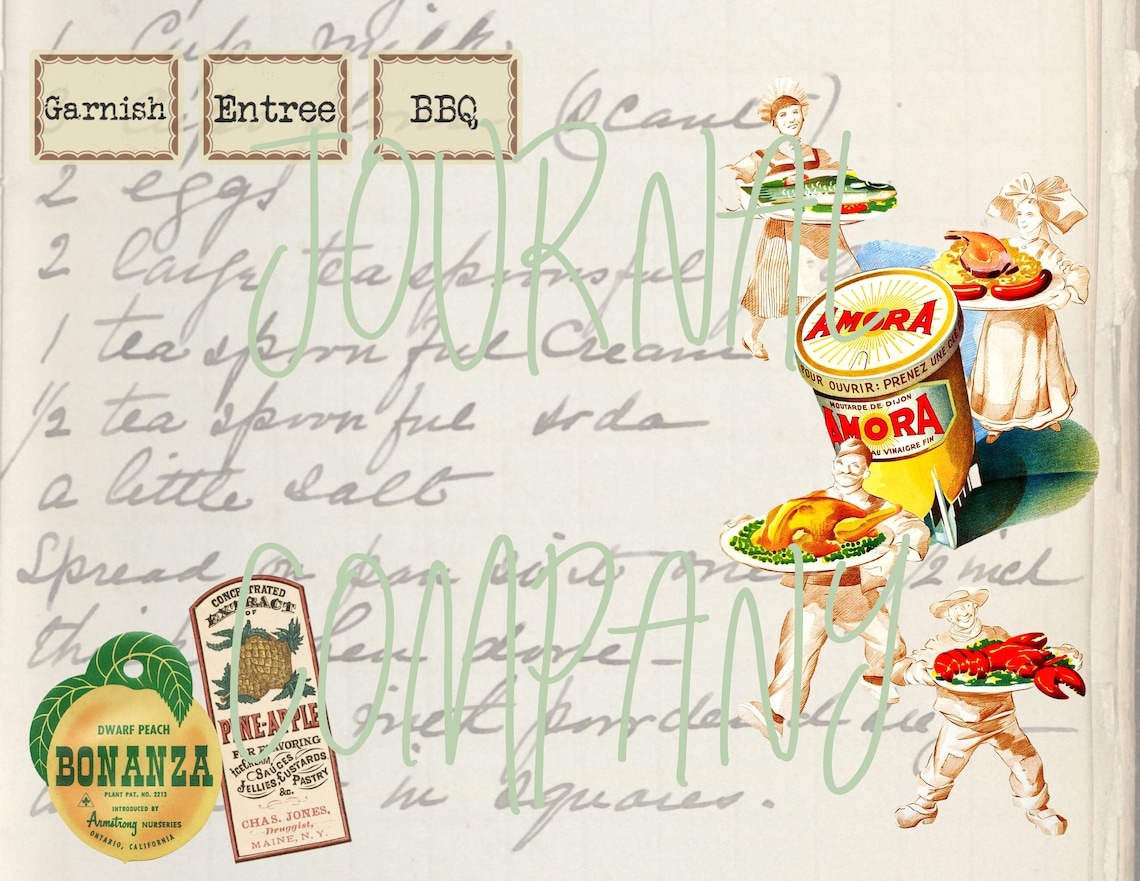 1 Cup milk.
Garnish
Entree
BBQ
(scant)
2 eggs
2 large teaspoonsful
1 tea spoon ful Cream
1/2 tea spoon ful soda
a little salt
Spread on pan 1/2 inch
when done—
with powdered sugar—
in squares.
JOURNAL
COMPANY
AMORA
POUR OUVRIR: PRENEZ UNE
MOUTARDE DE DIJON
AMORA
AU VINAIGRE FIN
DWARF PEACH
BONANZA
PLANT PAT. NO. 2213
INTRODUCED BY
Armstrong NURSERIES
ONTARIO, CALIFORNIA
CONCENTRATED
EXTRACT
OF
PINE-APPLE
FOR FLAVORING
ICE CREAM, SAUCES,
JELLIES, CUSTARDS
PASTRY
&c.
CHAS. JONES,
Druggist,
MAINE, N. Y.